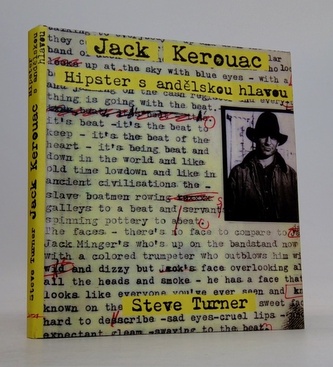 Jack Kerouac
Hipster s andělskou hlavou
looking up at the sky with blue eyes - with a
thing is going with the beat
it's beat - it's the beat to
keep - it's the beat of the
heart - it's being beat and
down in the world and like
old time lowdown and like in
ancient civilisations the -
slave boatmen rowing
galleys to a beat and servants
spinning pottery to a beat.
The faces - there's no face to compare to
Jack Minger's who's up on the bandstand now
with a colored trumpeter who outblows him wi
wild and dizzy but face overlooking al
all the heads and smoke - he has a face that
looks like everyone you've ever seen and kn
Steve Turner sweet fac
hard to describe -sad eyes-cruel lips -
expectant gleam -swaying to the beat
Steve Turner Jack Kerouac Hipster s andělskou hlavou